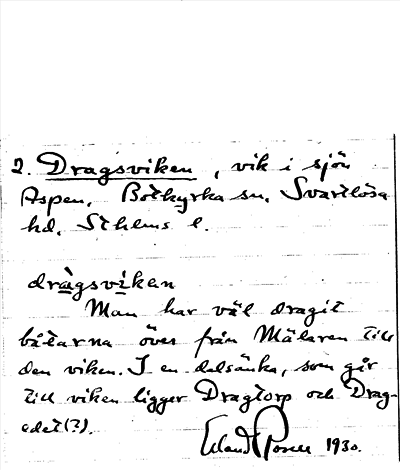 2. Dragsviken, vik i sjön
Aspen. Botkyrka sn. Svartlösa
hd. Sthlms l.
dràgsviken
Man har väl dragit
båtarna över från Mälaren till
den viken. I en dalsänka, som går
till viken ligger Dragtorp och Drag-
edet(?).
Erland Rosell 1930.